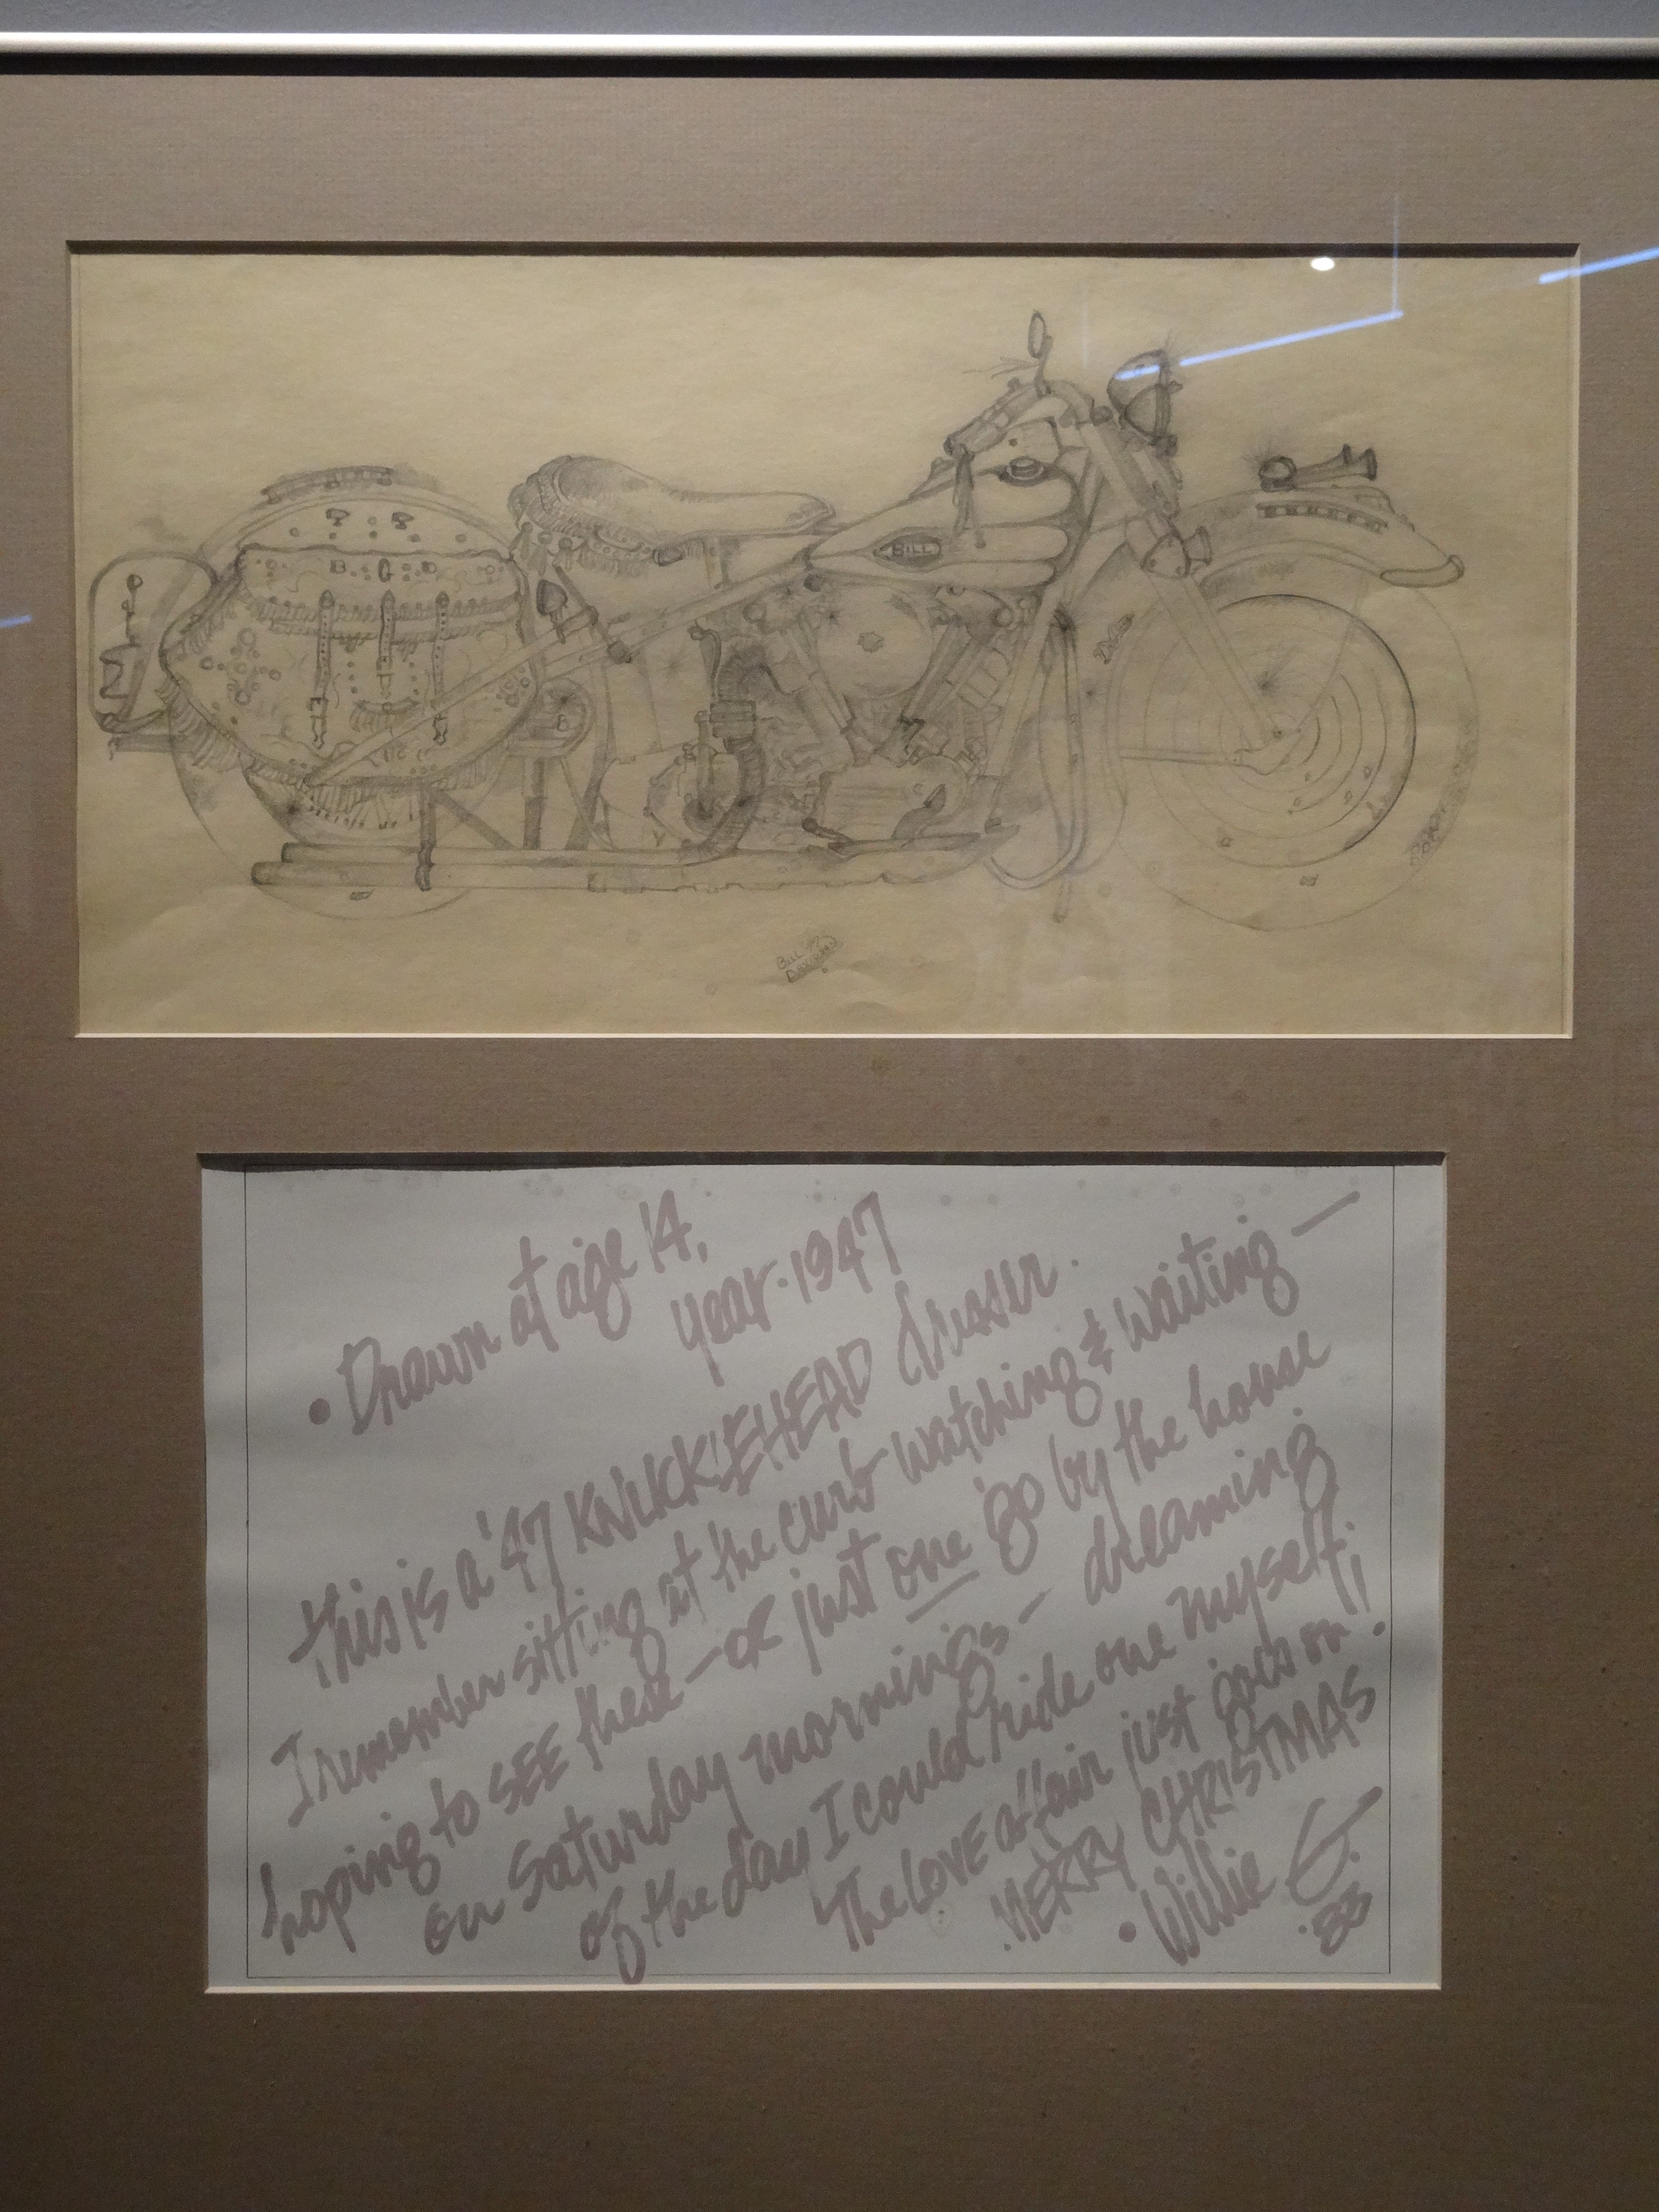 BILL
BILL
DAVIDSON
• Drawn at age 14,
year · 1947
This is a '47 KNUCKLEHEAD dresser.
I remember sitting at the curb watching & waiting —
hoping to SEE these — or just one go by the house
on Saturday mornings — dreaming
of the day I could ride one myself;
The LOVE affair just goes on!
MERRY CHRISTMAS
• Willie G.